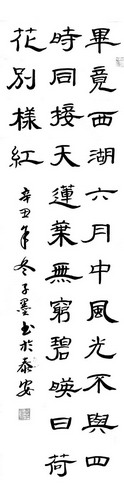 畢竟西湖六月中風光不與四
時同接天蓮葉無窮碧暎日荷
花別樣紅
辛丑年冬子墨书於泰安